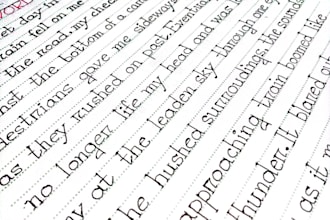 WORD
et day in
rain fell on me
the road. my cheek
nst the bottom of a cann
destrians gave me sideways
as they rushed on past. Eventual
no longer life my head and was
y at the leaden sky through one
he hushed surroundings, the sounds
approaching train boomed like
hunder. It blared
as it m